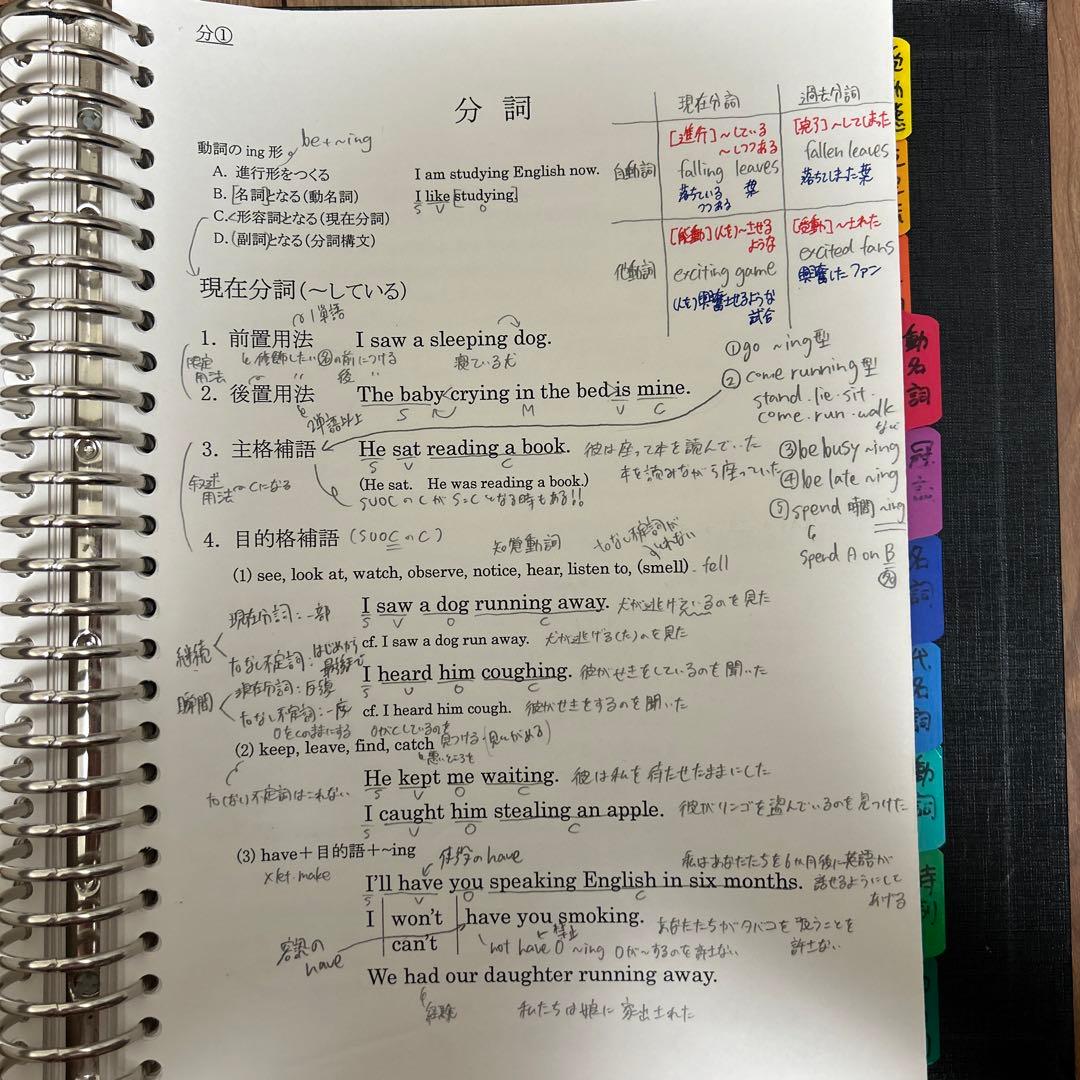 分①
分 詞
現在分詞 過去分詞
自動詞 [進行]～している ～しつつある [完了]～してしまった
falling leaves fallen leaves
落ちている つつある 葉 落ちてしまった葉
他動詞 [能動](人を)～させる ような [受動]～された
exciting game excited fans
(人を)興奮させるような 試合 興奮したファン
動詞の ing 形 be+~ing
A. 進行形をつくる I am studying English now.
B. 名詞となる(動名詞) I like studying.
S V O
C. 形容詞となる(現在分詞)
D. (副詞)となる(分詞構文)
現在分詞(～している)
1単語
1. 前置用法 I saw a sleeping dog.
限定用法 修飾したい名の前につける 寝ている犬
2. 後置用法 〃 〃 後 〃 The baby crying in the bed is mine.
2単語以上 S M V C
①go ~ing型
②come running型
stand.lie.sit.
come.run.walk
など
③be busy ~ing
④be late ~ing
⑤spend 時間 ~ing
spend A on B
名
3. 主格補語 He sat reading a book. 彼は座って本を読んでいた
S V C 本を読みながら座っていた
叙述用法 Cになる (He sat. He was reading a book.)
SVOCのCがS=Cとなる時もある!!
4. 目的格補語 (SVOCのC) 知覚動詞 toなし不定詞がとれない
(1) see, look at, watch, observe, notice, hear, listen to, (smell). fell
現在分詞:一部 I saw a dog running away. 犬が逃げているのを見た
S V O C
継続 cf. I saw a dog run away. 犬が逃げる(た)のを見た
toなし不定詞:はじめから最後まで
I heard him coughing. 彼がせきをしているのを聞いた
S V O C
瞬間 現在分詞:反復
toなし不定詞:一度 cf. I heard him cough. 彼がせきをするのを聞いた
OをCのままにする OがCしているのを
(2) keep, leave, find, catch 見つける
悪いところを
to(なし)不定詞はこれない He kept me waiting. 彼は私を待たせたままにした
S V O C
I caught him stealing an apple. 彼がリンゴを盗んでいるのを見つけた
S V O C
(3) have＋目的語＋~ing 使役のhave 私はあなたたちを6か月後に英語が
×let.make I'll have you speaking English in six months. 話せるようにして
S V O C あげる
I won't have you smoking. あなたたちがタバコを吸うことを
can't 許さない
容認のhave 禁止 not have O ~ing Oが~するのを許さない
We had our daughter running away.
経験 私たちは娘に家出された
受動態
動名詞
冠詞
名詞
代名詞
動詞
時制